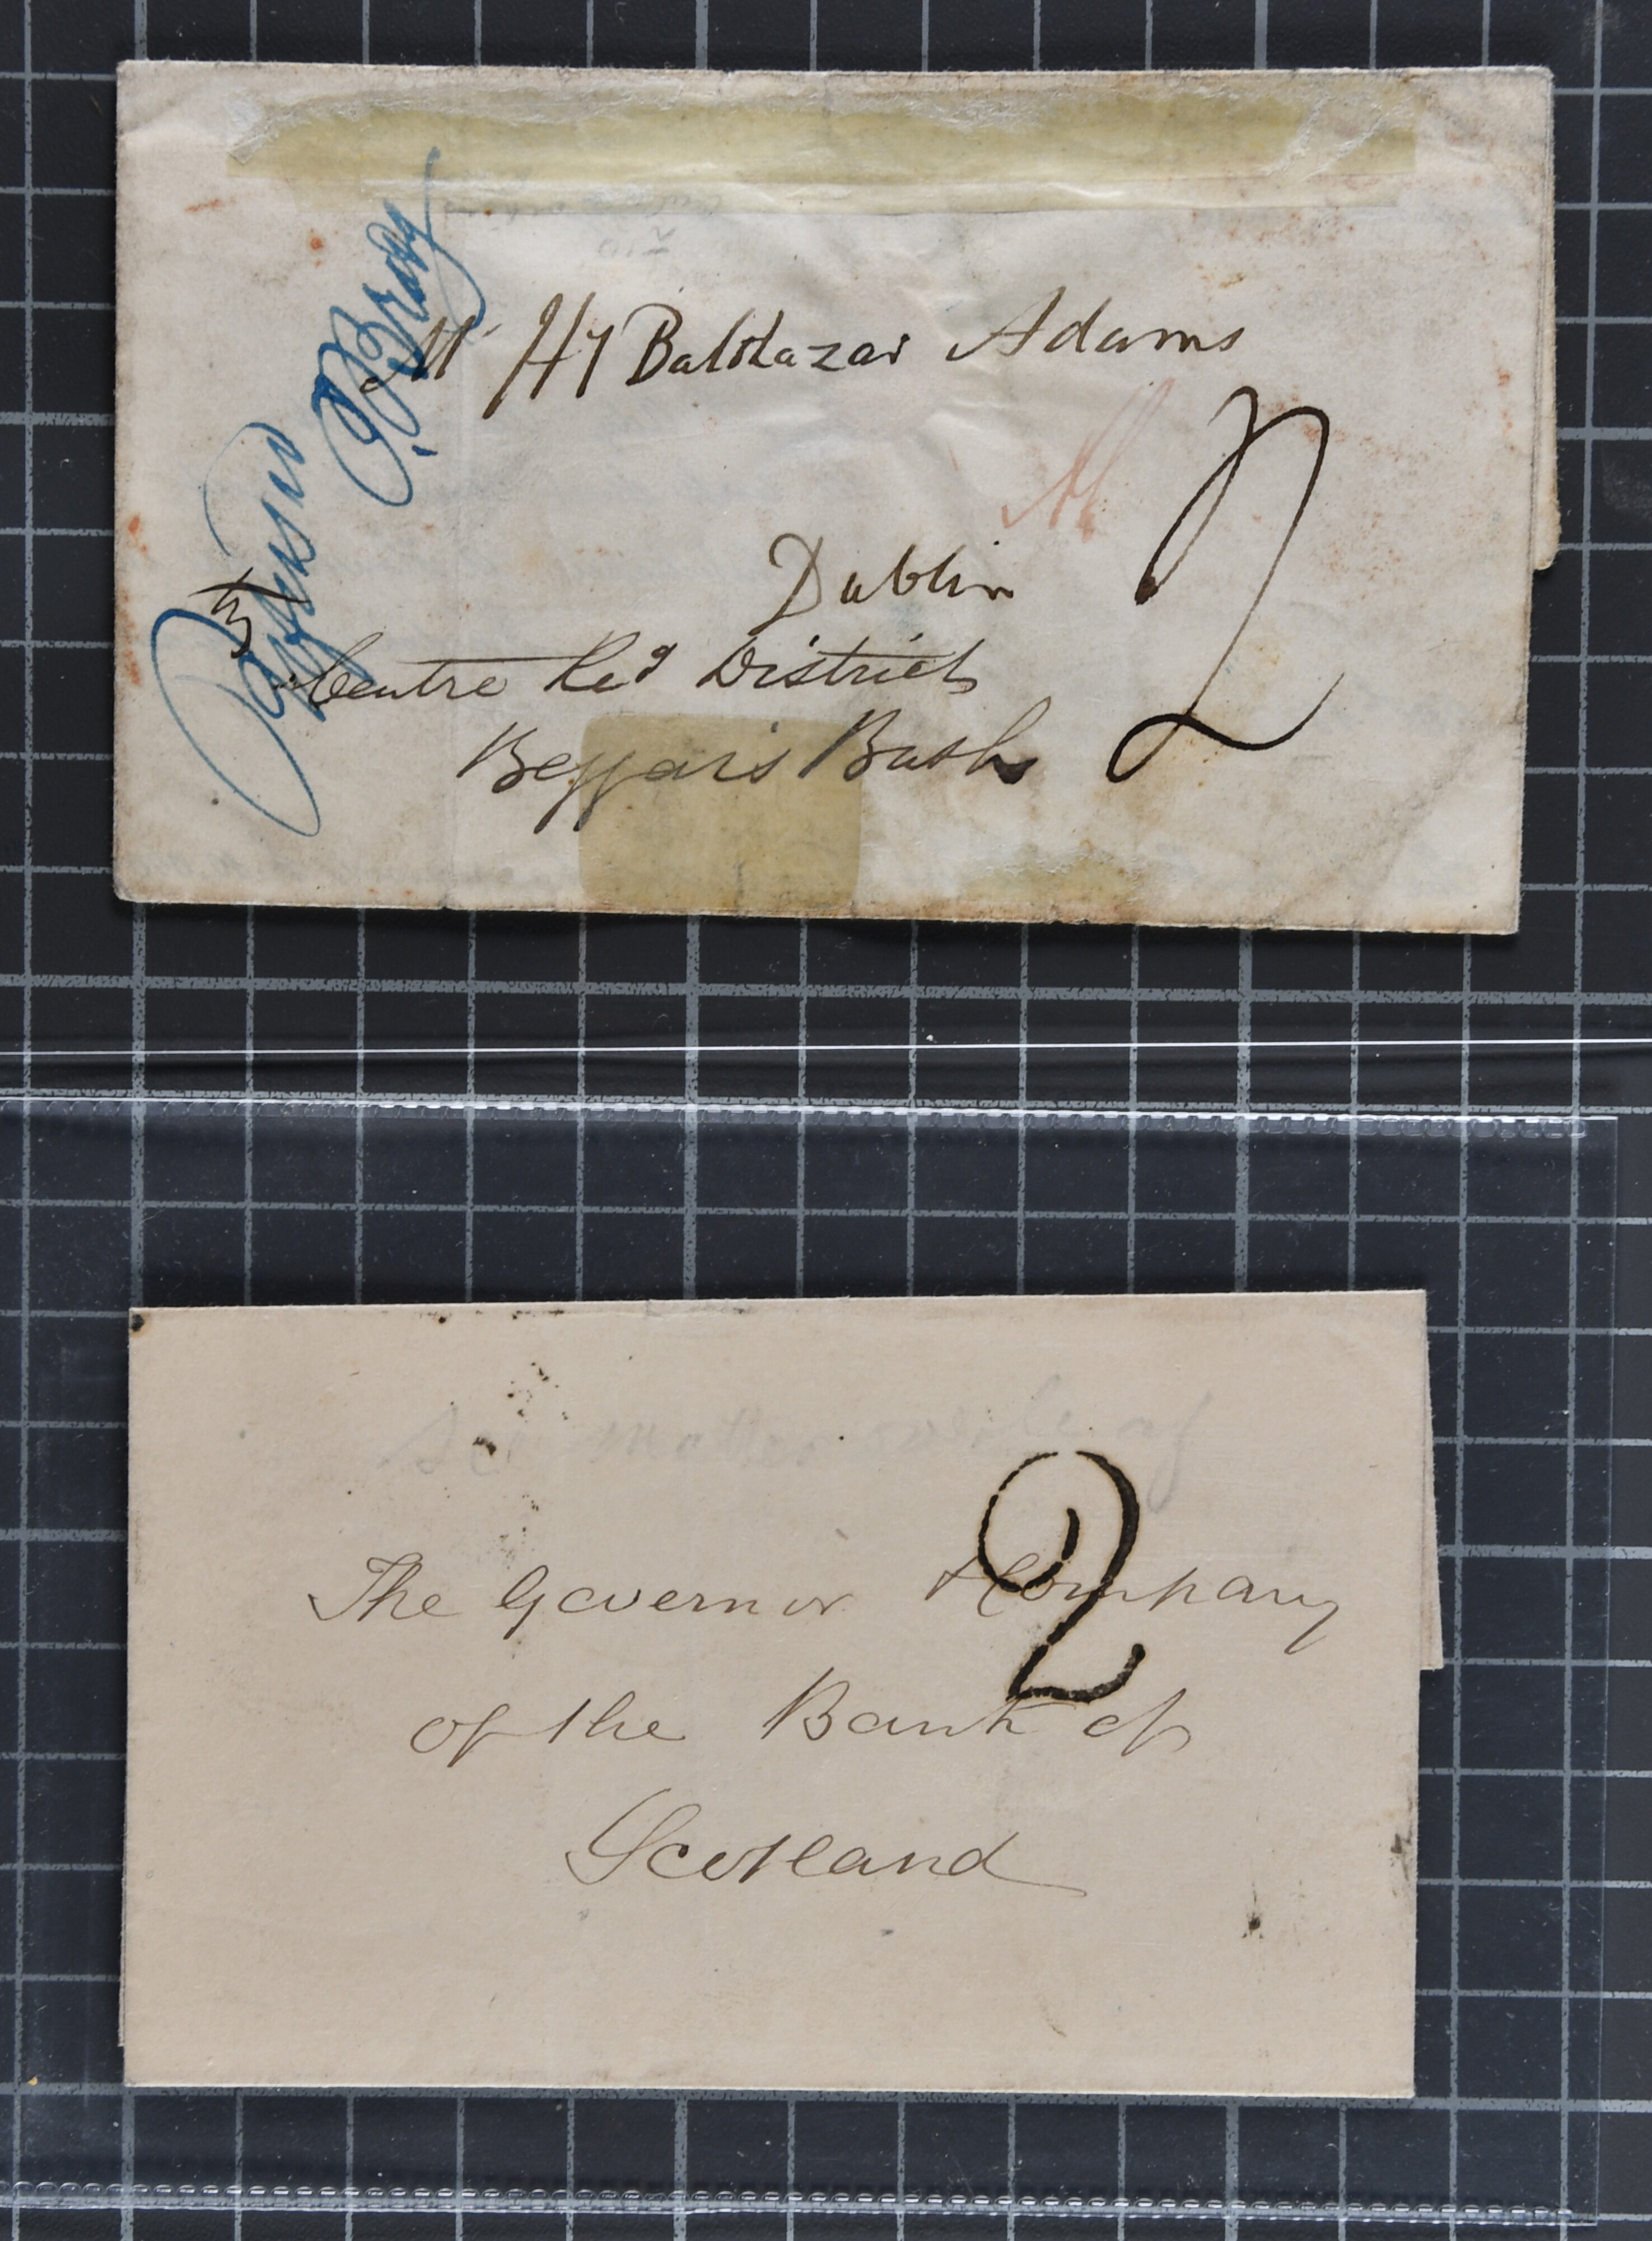 Mr Hy Balthazar Adams
2
Dublin
Refused
Centre Red District
Beggars Bush
The Governor & Company
2
of the Bank of
Scotland